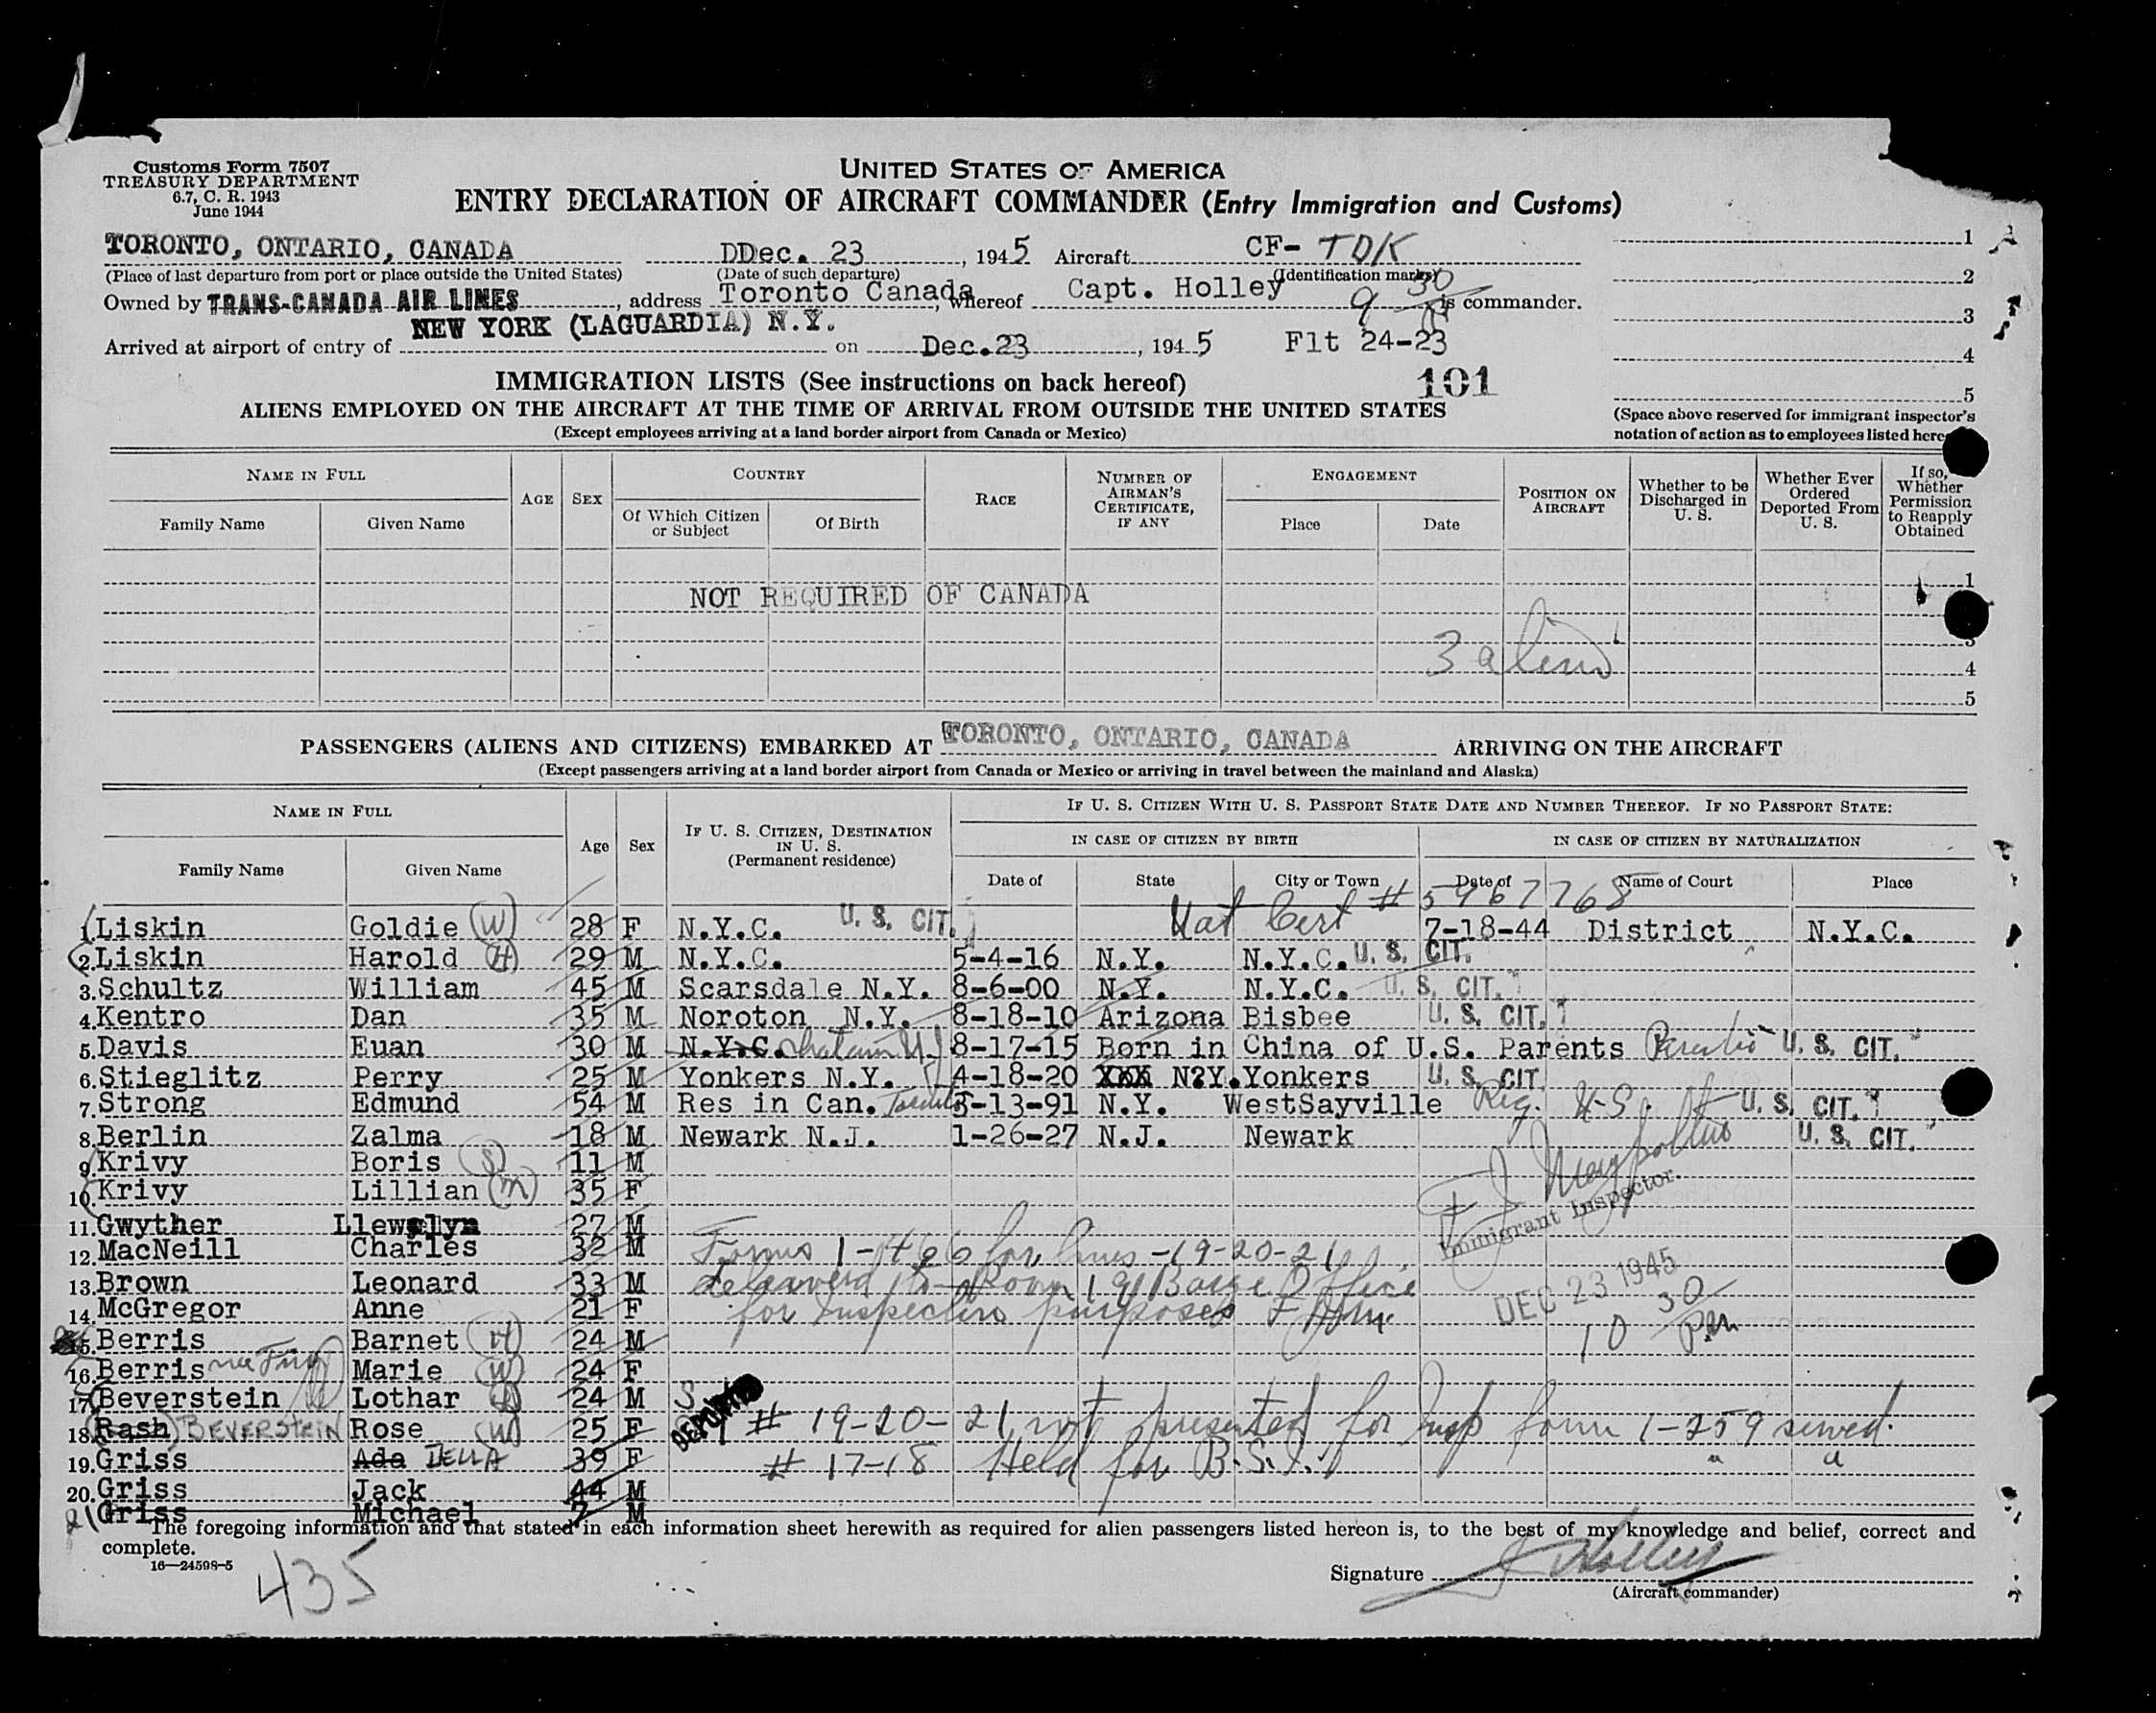 Customs Form 7507
TREASURY DEPARTMENT
6.7, C. R. 1943
June 1944
UNITED STATES OF AMERICA
ENTRY DECLARATION OF AIRCRAFT COMMANDER (Entry Immigration and Customs)
TORONTO, ONTARIO, CANADA DDec. 23, 1945 Aircraft CF- TDK
(Place of last departure from port or place outside the United States) (Date of such departure) (Identification marks)
Owned by TRANS-CANADA AIR LINES, address Toronto Canada, whereof Capt. Holley is commander.
9 30
NEW YORK (LAGUARDIA) N.Y.
Arrived at airport of entry of on Dec.23, 1945 Flt 24-23
1
2
3
4
5
IMMIGRATION LISTS (See instructions on back hereof) 101
ALIENS EMPLOYED ON THE AIRCRAFT AT THE TIME OF ARRIVAL FROM OUTSIDE THE UNITED STATES
(Except employees arriving at a land border airport from Canada or Mexico)
(Space above reserved for immigrant inspector's
notation of action as to employees listed here
NAME IN FULL
Family Name Given Name
AGE SEX
COUNTRY
Of Which Citizen or Subject Of Birth
RACE
NUMBER OF AIRMAN'S CERTIFICATE, IF ANY
ENGAGEMENT
Place Date
POSITION ON AIRCRAFT
Whether to be Discharged in U. S.
Whether Ever Ordered Deported From U. S.
If so, Whether Permission to Reapply Obtained
1
NOT REQUIRED OF CANADA
3
3 aliens
4
5
PASSENGERS (ALIENS AND CITIZENS) EMBARKED AT TORONTO, ONTARIO, CANADA ARRIVING ON THE AIRCRAFT
(Except passengers arriving at a land border airport from Canada or Mexico or arriving in travel between the mainland and Alaska)
NAME IN FULL
Family Name Given Name
Age Sex
IF U. S. CITIZEN, DESTINATION IN U. S. (Permanent residence)
IF U. S. CITIZEN WITH U. S. PASSPORT STATE DATE AND NUMBER THEREOF. IF NO PASSPORT STATE:
IN CASE OF CITIZEN BY BIRTH IN CASE OF CITIZEN BY NATURALIZATION
Date of State City or Town Date of Name of Court Place
Nat Cert # 5967768
1. Liskin Goldie (W) 28 F N.Y.C. U. S. CIT. 7-18-44 District N.Y.C.
2. Liskin Harold (H) 29 M N.Y.C. 5-4-16 N.Y. N.Y.C. U. S. CIT.
3. Schultz William 45 M Scarsdale N.Y. 8-6-00 N.Y. N.Y.C. U. S. CIT.
4. Kentro Dan 35 M Noroton N.Y. 8-18-10 Arizona Bisbee U. S. CIT.
5. Davis Euan 30 M N.Y.C. Chatam N.J. 8-17-15 Born in China of U.S. Parents U. S. CIT.
6. Stieglitz Perry 25 M Yonkers N.Y. 4-18-20 XXX N?Y. Yonkers U. S. CIT.
7. Strong Edmund 54 M Res in Can. Toronto 5-13-91 N.Y. WestSayville Reg. U. S. CIT.
8. Berlin Zalma 18 M Newark N.J. 1-26-27 N.J. Newark U. S. CIT.
9. Krivy Boris (S) 11 M
10. Krivy Lillian (M) 35 F
Immigrant Inspector.
11. Gwyther Llewelyn 27 M
12. MacNeill Charles 32 M Forms 1-466 for lines -19-20-21
13. Brown Leonard 33 M delivered to Room 19 Barge Office
DEC 23 1945
14. McGregor Anne 21 F for inspection purposes
10 30 pm
15. Berris Barnet (H) 24 M
16. Berris nee Marie (W) 24 F
17. Beverstein Lothar (H) 24 M S
DEPORTED
18. (Rash) BEVERSTEIN Rose (W) 25 F # 19-20-21 not presented for Insp form 1-259 served.
19. Griss Ada DELLA 39 F # 17-18 Held for B.S.I. " "
20. Griss Jack 44 M
21 Griss Michael 7 M
The foregoing information and that stated in each information sheet herewith as required for alien passengers listed hereon is, to the best of my knowledge and belief, correct and
complete.
16—24598-5
435
Signature Holley
(Aircraft commander)